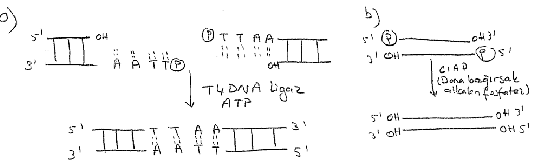 a)
b)
5' OH
3' A A T T P
P T T A A
OH
T4 DNA Ligaz
ATP
5' T T A A 3'
3' A A T T 5'
5' P OH 3'
3' OH P 5'
CIAP
(Dana bağırsak
alkalen fosfataz)
5' OH OH 3'
3' OH OH 5'